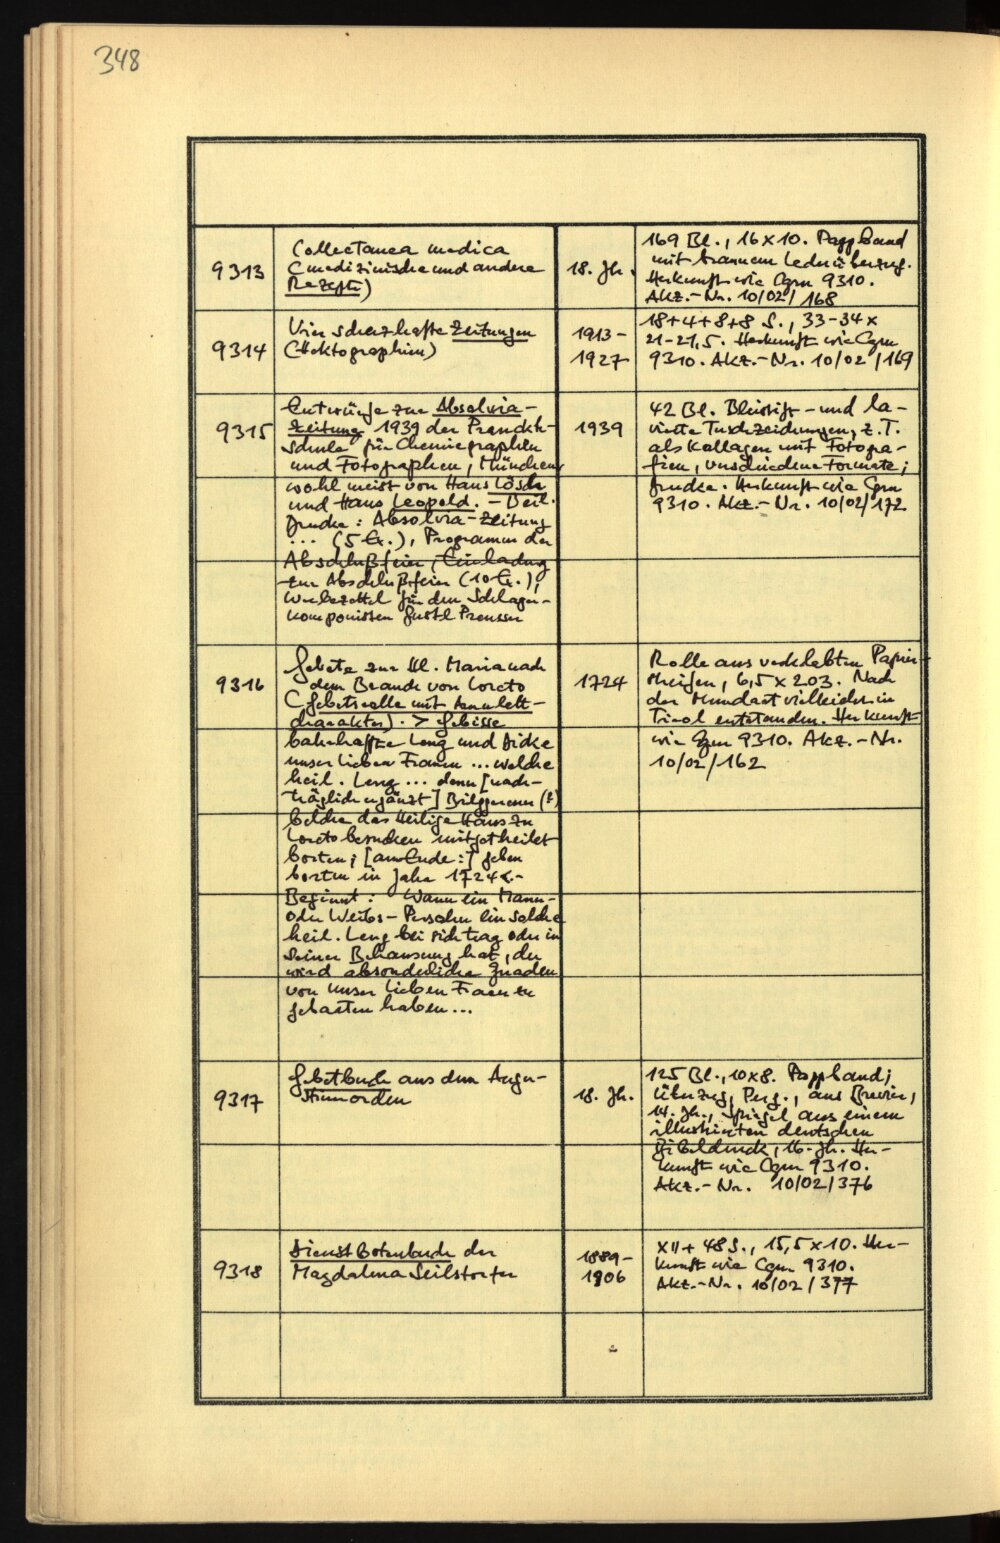 348
9313
Collectanea medica
(medizinische und andere
Rezepte)
18. Jh.
169 Bl., 16 x 10. Pappband
mit braunem Lederüberzug.
Herkunft wie Cgm 9310.
Akz.-Nr. 10/02/168
9314
Vier scherzhafte Zeitungen
(Hektographien)
1913-
1927
18+4+8+8 S., 33-34 x
21-21,5. Herkunft wie Cgm
9310. Akz.-Nr. 10/02/169
9315
Entwürfe zur Absolvia-
Zeitung 1939 der Pranckh-
schule für Chemiegraphen
und Fotographen, München,
wohl meist von Hans Lösch
und Hans Leopold. - Beil.
Drucke: Absolvia-Zeitung
... (5 Ex.), Programm der
Abschlußfeier, Einladung
zur Abschlußfeier (10 Ex.),
Werbezettel für den Schlager-
komponisten Gustl Preusser
1939
42 Bl. Bleistift- und la-
vierte Tuschzeichnungen, z.T.
als Kollagen mit Fotogra-
fien, verschiedene Formate;
Drucke. Herkunft wie Cgm
9310. Akz.-Nr. 10/02/172
9316
Gebete zur Hl. Maria nach
dem Brande von Loreto
(Gebetsrolle mit Amulett-
charakter). > Gebisse
bahrhaffte Leng und Dicke
unser lieben Frauen ... welche
heil. Leng ... denn [nach-
träglich ergänzt] (?)
belche das Heilige Haus zu
Loreto besuchen mitgetheilet
borten; [am Ende:] geben
borten in Jahr 1724 <.-
Beginnt: Wann ein Mann-
oder Weibs-Persohn ein solche
heil. Leng bei sich trag oder in
seiner Behausung hat, der
wird absonderliche Gnaden
von unser lieben Frauen zu
gebarten haben...
1724
Rolle aus verklebten Papier-
streifen, 6,5 x 203. Nach
der Mundart vielleicht in
Tirol entstanden. Herkunft
wie Cgm 9310. Akz.-Nr.
10/02/162
9317
Gebetbuch aus dem Augu-
stinerorden
18. Jh.
125 Bl., 10x8. Pappband;
Überzug, Perg., aus Brevier,
14. Jh., Spiegel aus einem
illustrierten deutschen
Bibeldruck, 16. Jh. Her-
kunft wie Cgm 9310.
Akz.-Nr. 10/02/376
9318
Dienstbotenbuch der
Magdalena Seilstorfer
1889-
1906
XII + 48 S., 15,5 x 10. Her-
kunft wie Cgm 9310.
Akz.-Nr. 10/02/377